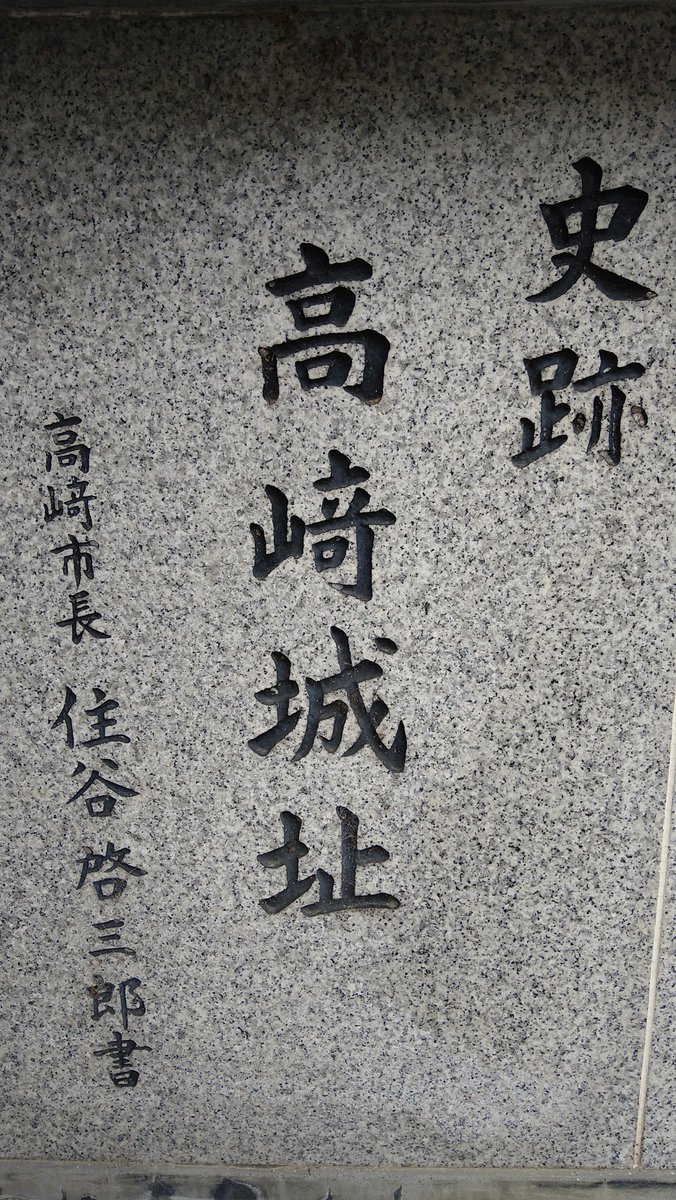 史跡
高崎城址
高崎市長 住谷啓三郎書